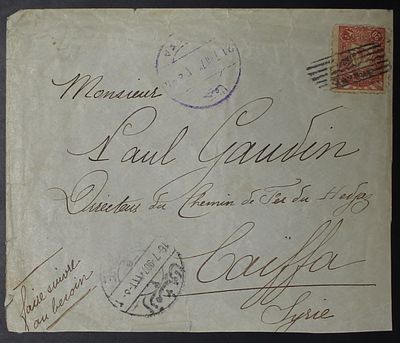 Monsieur
Paul Gaudin
Directeur du Chemin de Fer du Hedjaz
Caïffa
Syrie
faire suivre
au besoin